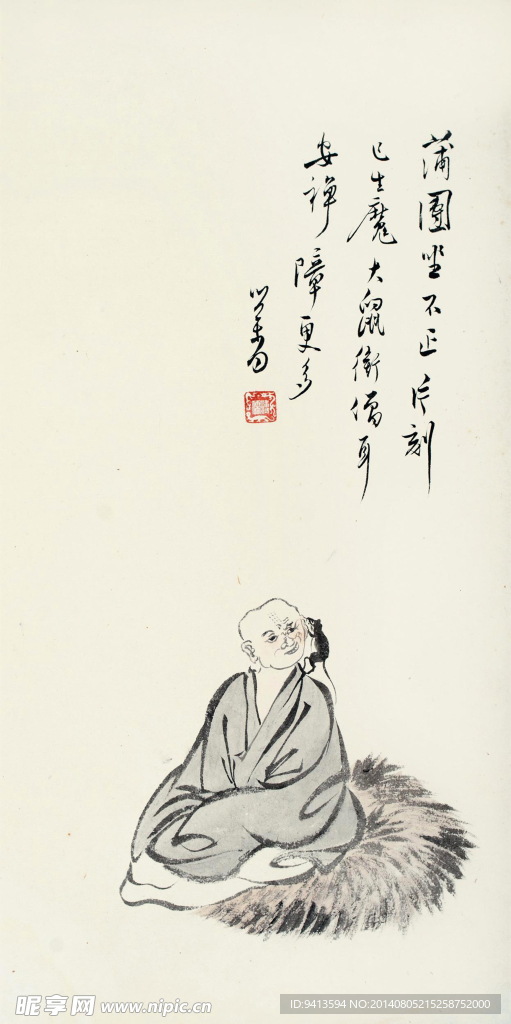 蒲團坐不正片刻
已生魔大鼠銜僧耳
安禪障更多
心畬
昵享网 www.nipic.cn
ID:9413594 NO:20140805215258752000